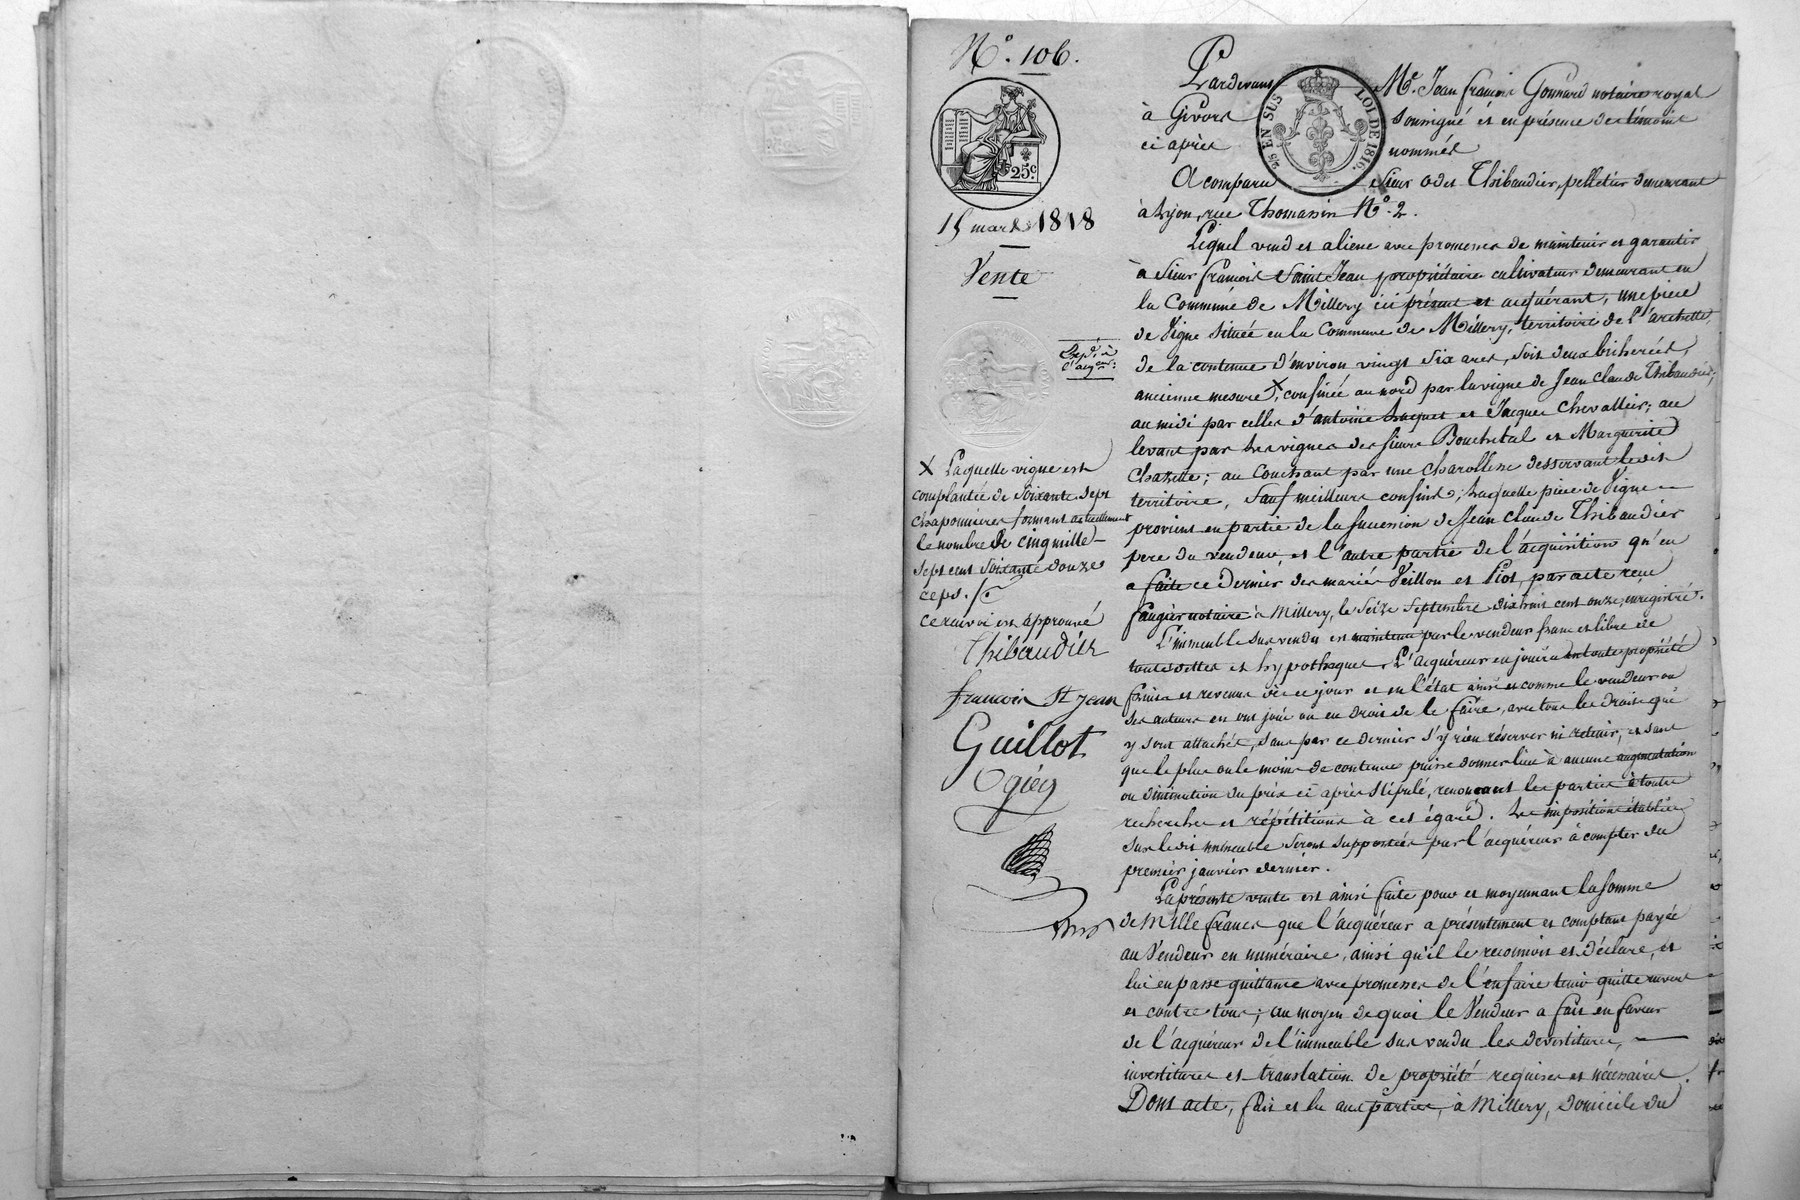 N.° 106.
25 EN SUS
LOI DE 1816.
25.c
15 mars 1818
Vente
Exp.é à
l'acq.eur:
Pardevant Me. Jean françois Gonnard notaire royal
à Givors soussigné et en présence des témoins
ci après nommés
A comparu Sieur Odet Thibaudier, pelletier demeurant
à Lyon, rue Thomassin N.° 2.
Lequel vend et aliene avec promesses de maintenir et garantir
à Sieur françois Saint Jean propriétaire cultivateur demeurant en
la Commune de Millery ici présent et acquérant, une pièce
de Vigne située en la Commune de Millery, territoire de l'archette,
de la contenue d'environ vingt six ares, soit deux bicherées,
ancienne mesure X, confinée au nord par la vigne de Jean Claude Thibaudier;
au midi par celles d'antoine et Jacques Chevallier; au
levant par les vignes des sieurs Bouchital et Marguerite
Chazette; au Couchant par une charollere desservant ledit
territoire, Sauf meilleurs confins; Laquelle pièce de Vigne
provient en partie de la succession de Jean Claude Thibaudier
pere du vendeur et l'autre partie de l'acquisition qu'en
a faite ce dernier des mariés Veillon et Piot, par acte reçu
faugier notaire à Millery, le Seize Septembre dix huit cent onze, enregistré.
L'immeuble sus vendu est maintenu par le vendeur franc et libre de
toutes dettes et hypothèques. L'acquéreur en jouira en toute propriété
fruits et revenus dès ce jour et en l'état ainsi et comme le vendeur ou
ses auteurs en ont joui ou eu droit de le faire, avec tous les droits qui
y sont attachés, sans par ce dernier s'y rien réserver ni retenir, et sans
que le plus ou le moins de contenue puisse donner lieu à aucune augmentation
ou diminution du prix ci après stipulé, renonçant les parties à toutes
recherches et répétitions à cet égard. Les impositions établies
sur ledit immeuble seront supportées par l'acquéreur à compter du
premier janvier dernier.
La présente vente est ainsi faite pour et moyennant la somme
de Mille francs que l'acquéreur a présentement et comptant payée
au Vendeur en numéraire, ainsi qu'il le reconnoit et déclare, et
lui en passe quittance avec promesses de l'en faire tenir quitte envers
et contre tous; au moyen de quoi le Vendeur a fait en faveur
de l'acquéreur de l'immeuble sus vendu les devestitures,
investitures et translation de propriété requises et nécessaires.
Dont acte, fait et lu aux parties, à Millery, domicile du
X Laquelle vigne est
complantée de Soixante sept
chaponnières formant actuellement
le nombre de cinq mille
sept cent Soixante douze
ceps.
ce renvoi est approuvé
Thibaudier
francois St jean
Guillot
Ogiez